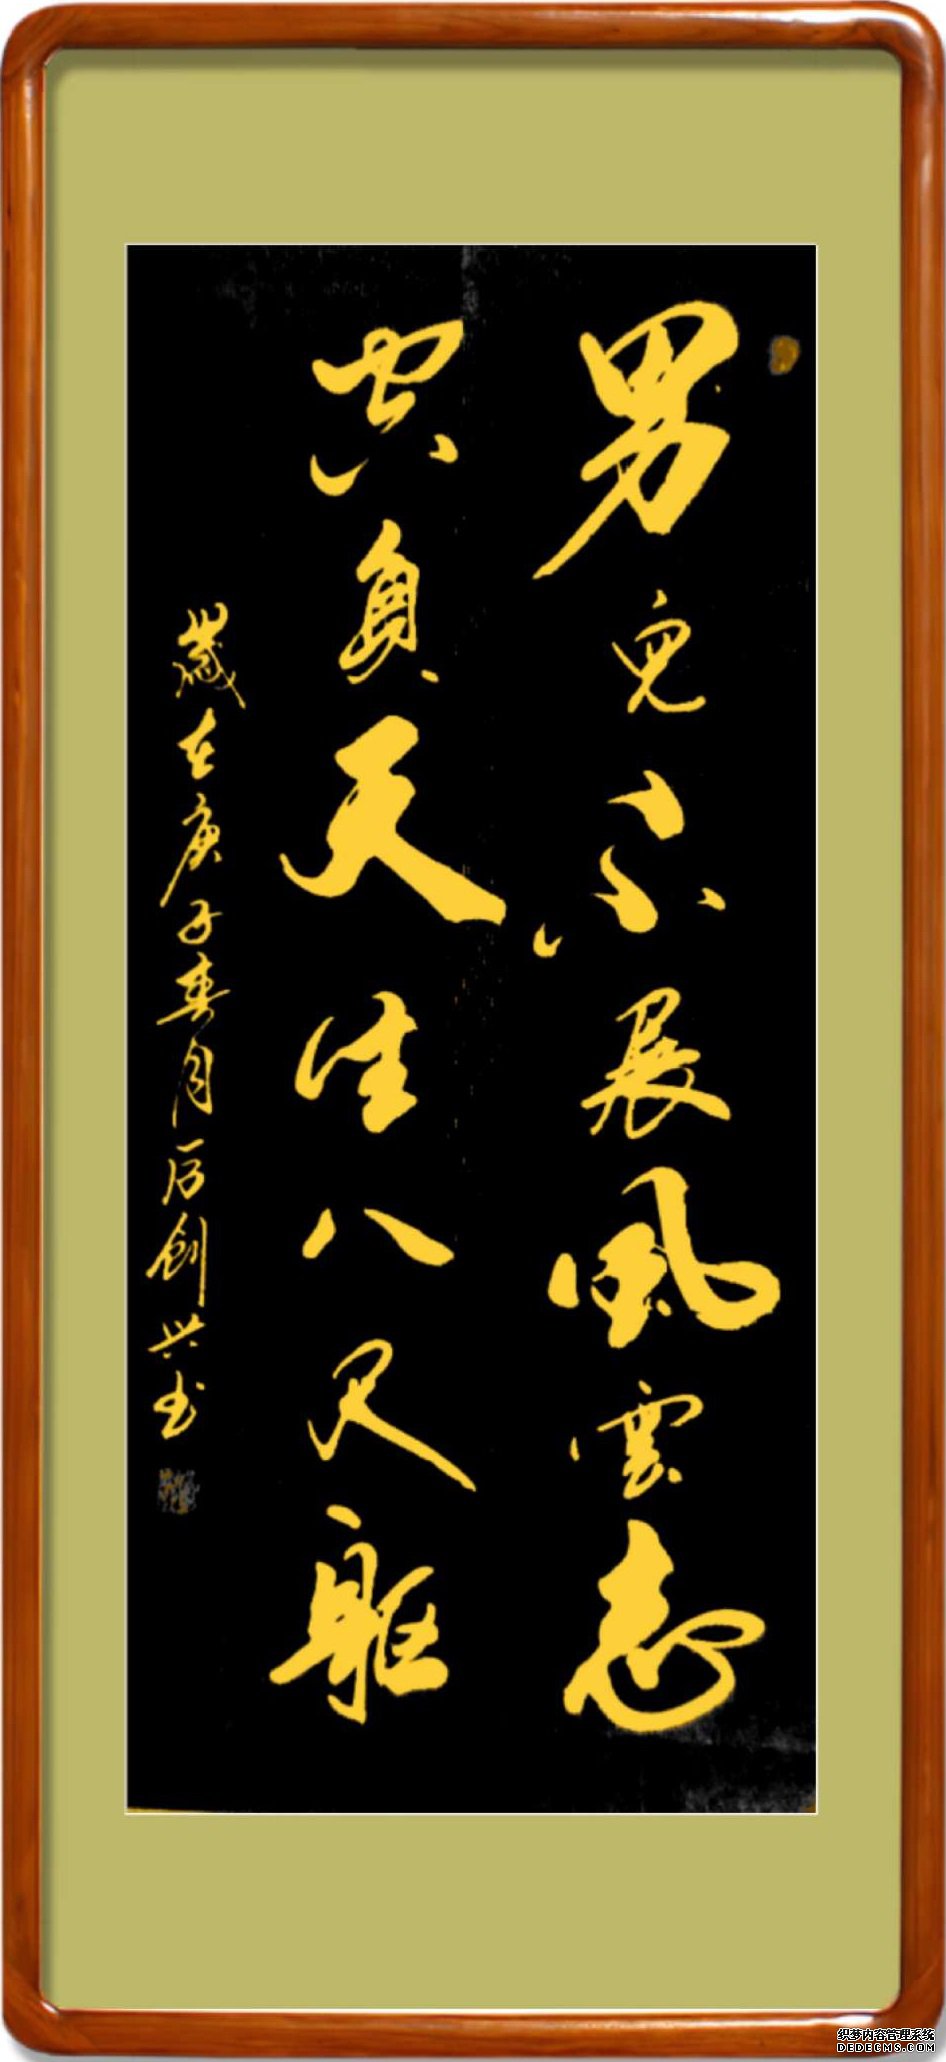 男兒不展風雲志
空負天生八尺軀
歲在庚子春月厉創兴书
织梦内容管理系统
DEDECMS.COM